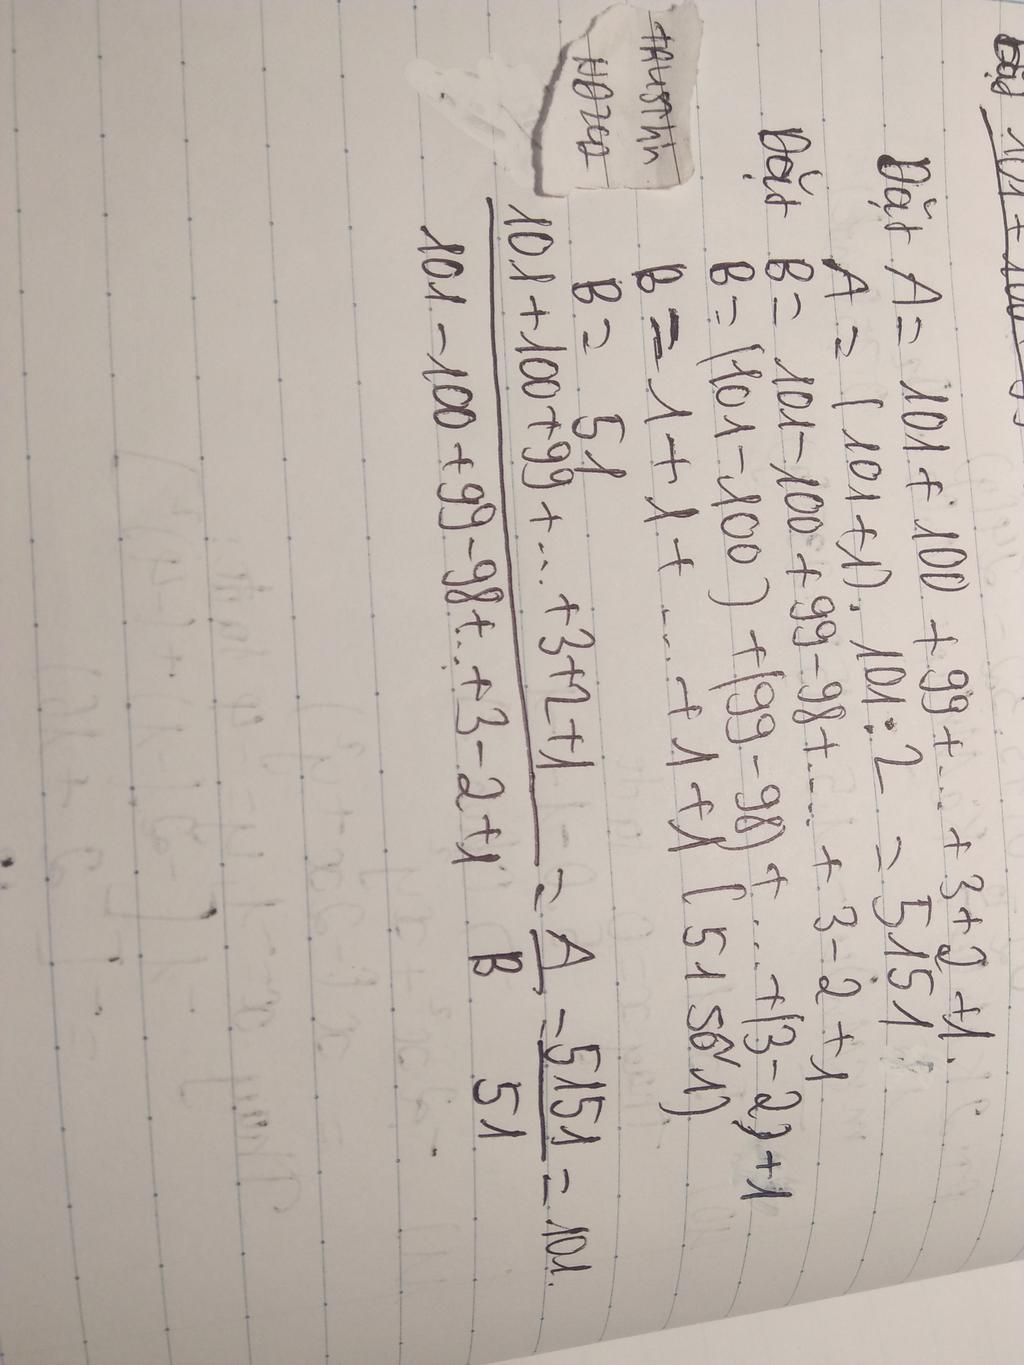 101 + 100
Đặt A = 101 + 100 + 99 + ... + 3 + 2 + 1.
A = (101 + 1). 101 : 2 = 5151
Đặt B = 101 - 100 + 99 - 98 + ... + 3 - 2 + 1
B = (101 - 100) + (99 - 98) + ... + (3 - 2) + 1
B = 1 + 1 + ... + 1 + 1 (51 số 1)
B = 51
101 + 100 + 99 + ... + 3 + 2 + 1 / 101 - 100 + 99 - 98 + ... + 3 - 2 + 1 = A / B = 5151 / 51 = 101.